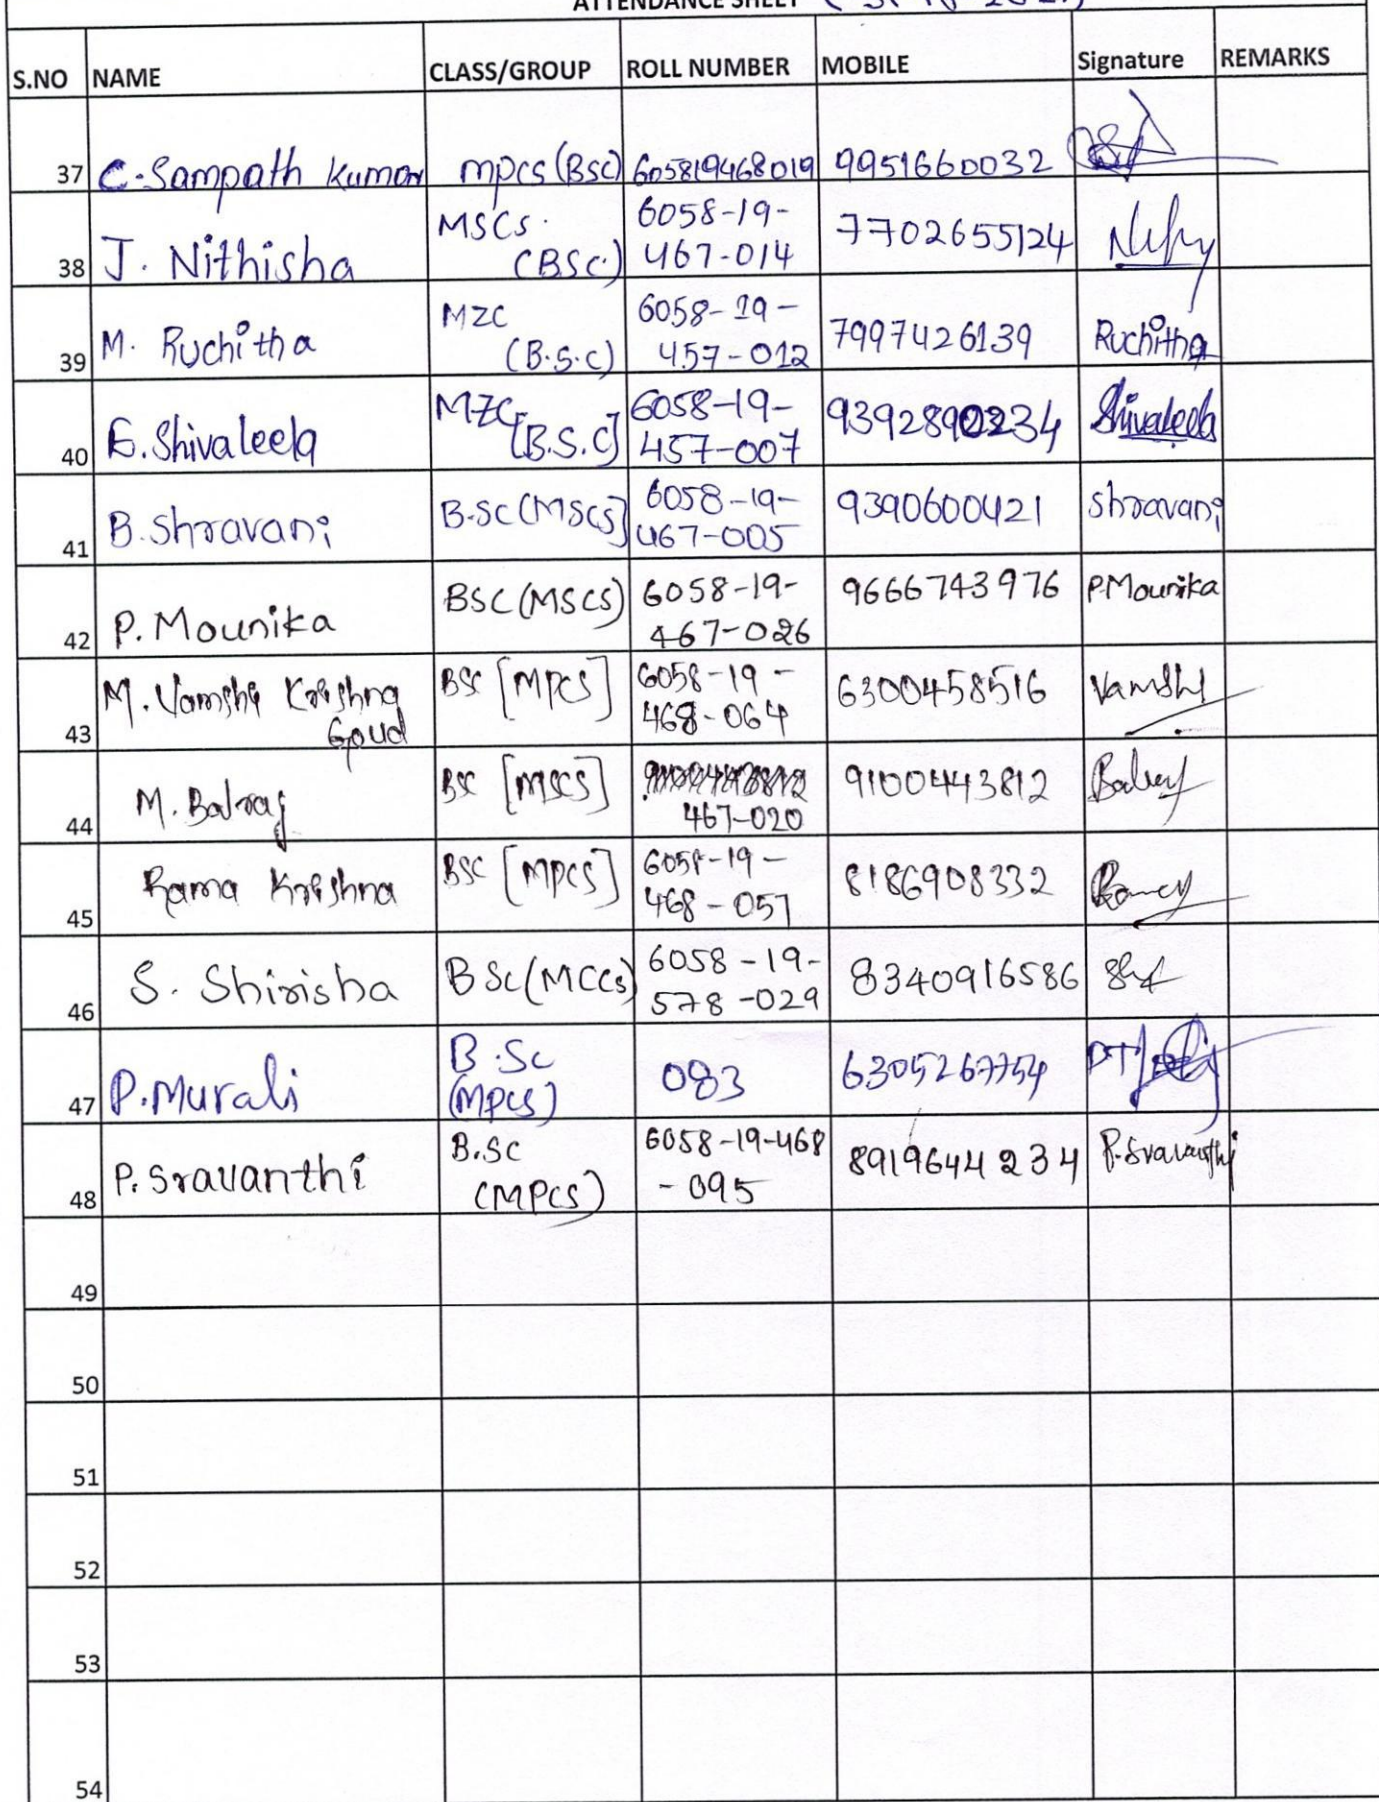 ATTENDANCE SHEET
S.NO NAME CLASS/GROUP ROLL NUMBER MOBILE Signature REMARKS
37 C. Sampath Kumar mpcs (Bsc) 605819468019 9951660032
38 J. Nithisha MSCs. (BSC) 6058-19-467-014 7702655124
39 M. Ruchitha MZC (B.S.C) 6058-19-457-012 7997426139 Ruchitha
40 E. Shivaleela MZC [B.S.C] 6058-19-457-007 9392890234 Shivaleela
41 B. Shravani B.SC (MSCS] 6058-19-467-005 9390600421 Shravani
42 P. Mounika BSC (MSCS) 6058-19-467-026 9666743976 P.Mounika
43 M. Vamshi Krishna Goud BSC [MPCS] 6058-19-468-064 6300458516 Vamshi
44 M. Balraj BSC [MSCS] 467-020 9100443812
45 Rama Krishna BSC [MPCS] 6058-19-468-057 8186908332
46 S. Shirisha B Sc (MCCs) 6058-19-578-029 8340916586
47 P. Murali B.Sc (MPCS) 083 6305267754
48 P. Sravanthi B.SC (MPCS) 6058-19-468-095 8919644234 P. Sravanthi
49
50
51
52
53
54